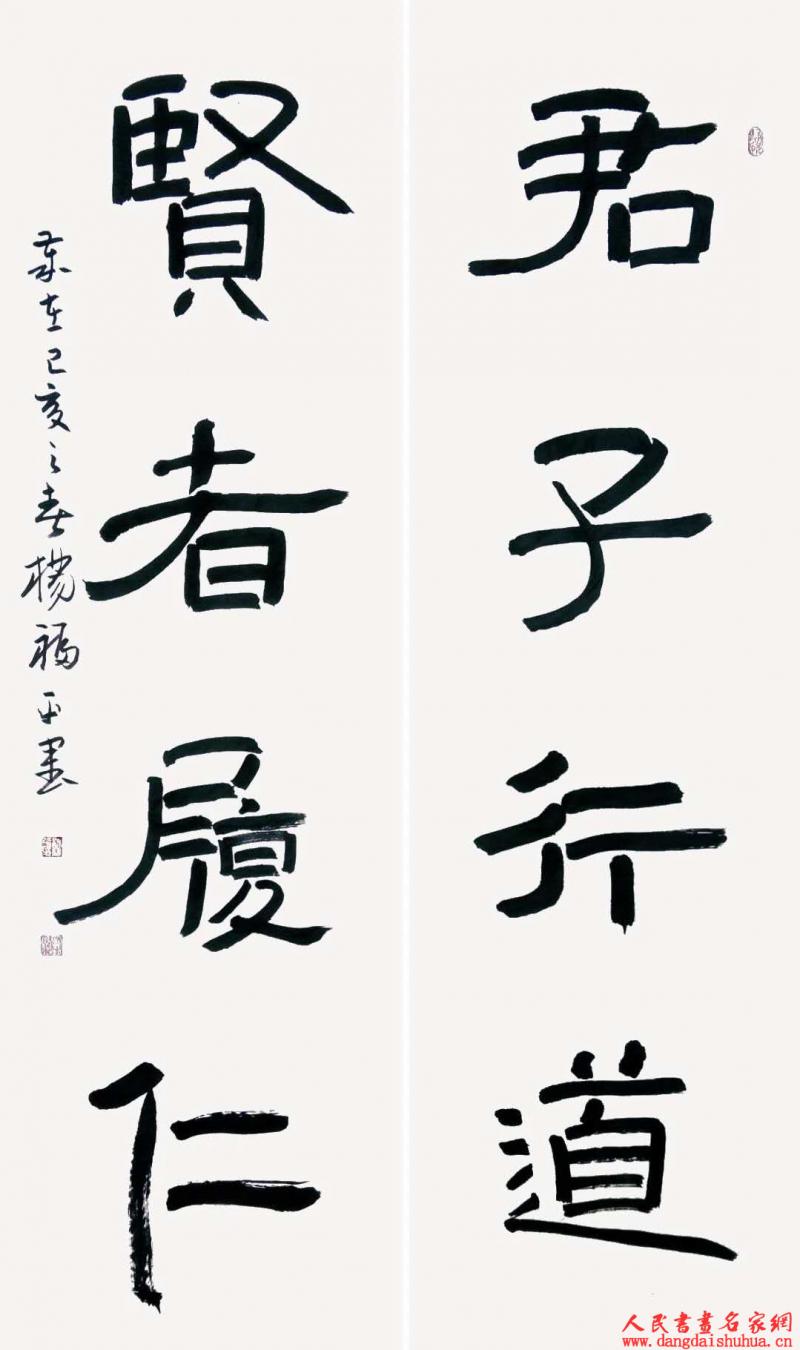 君子行道
賢者履仁
歲在己亥之春楊福平書
人民書畫名家網
www.dangdaishuhua.cn